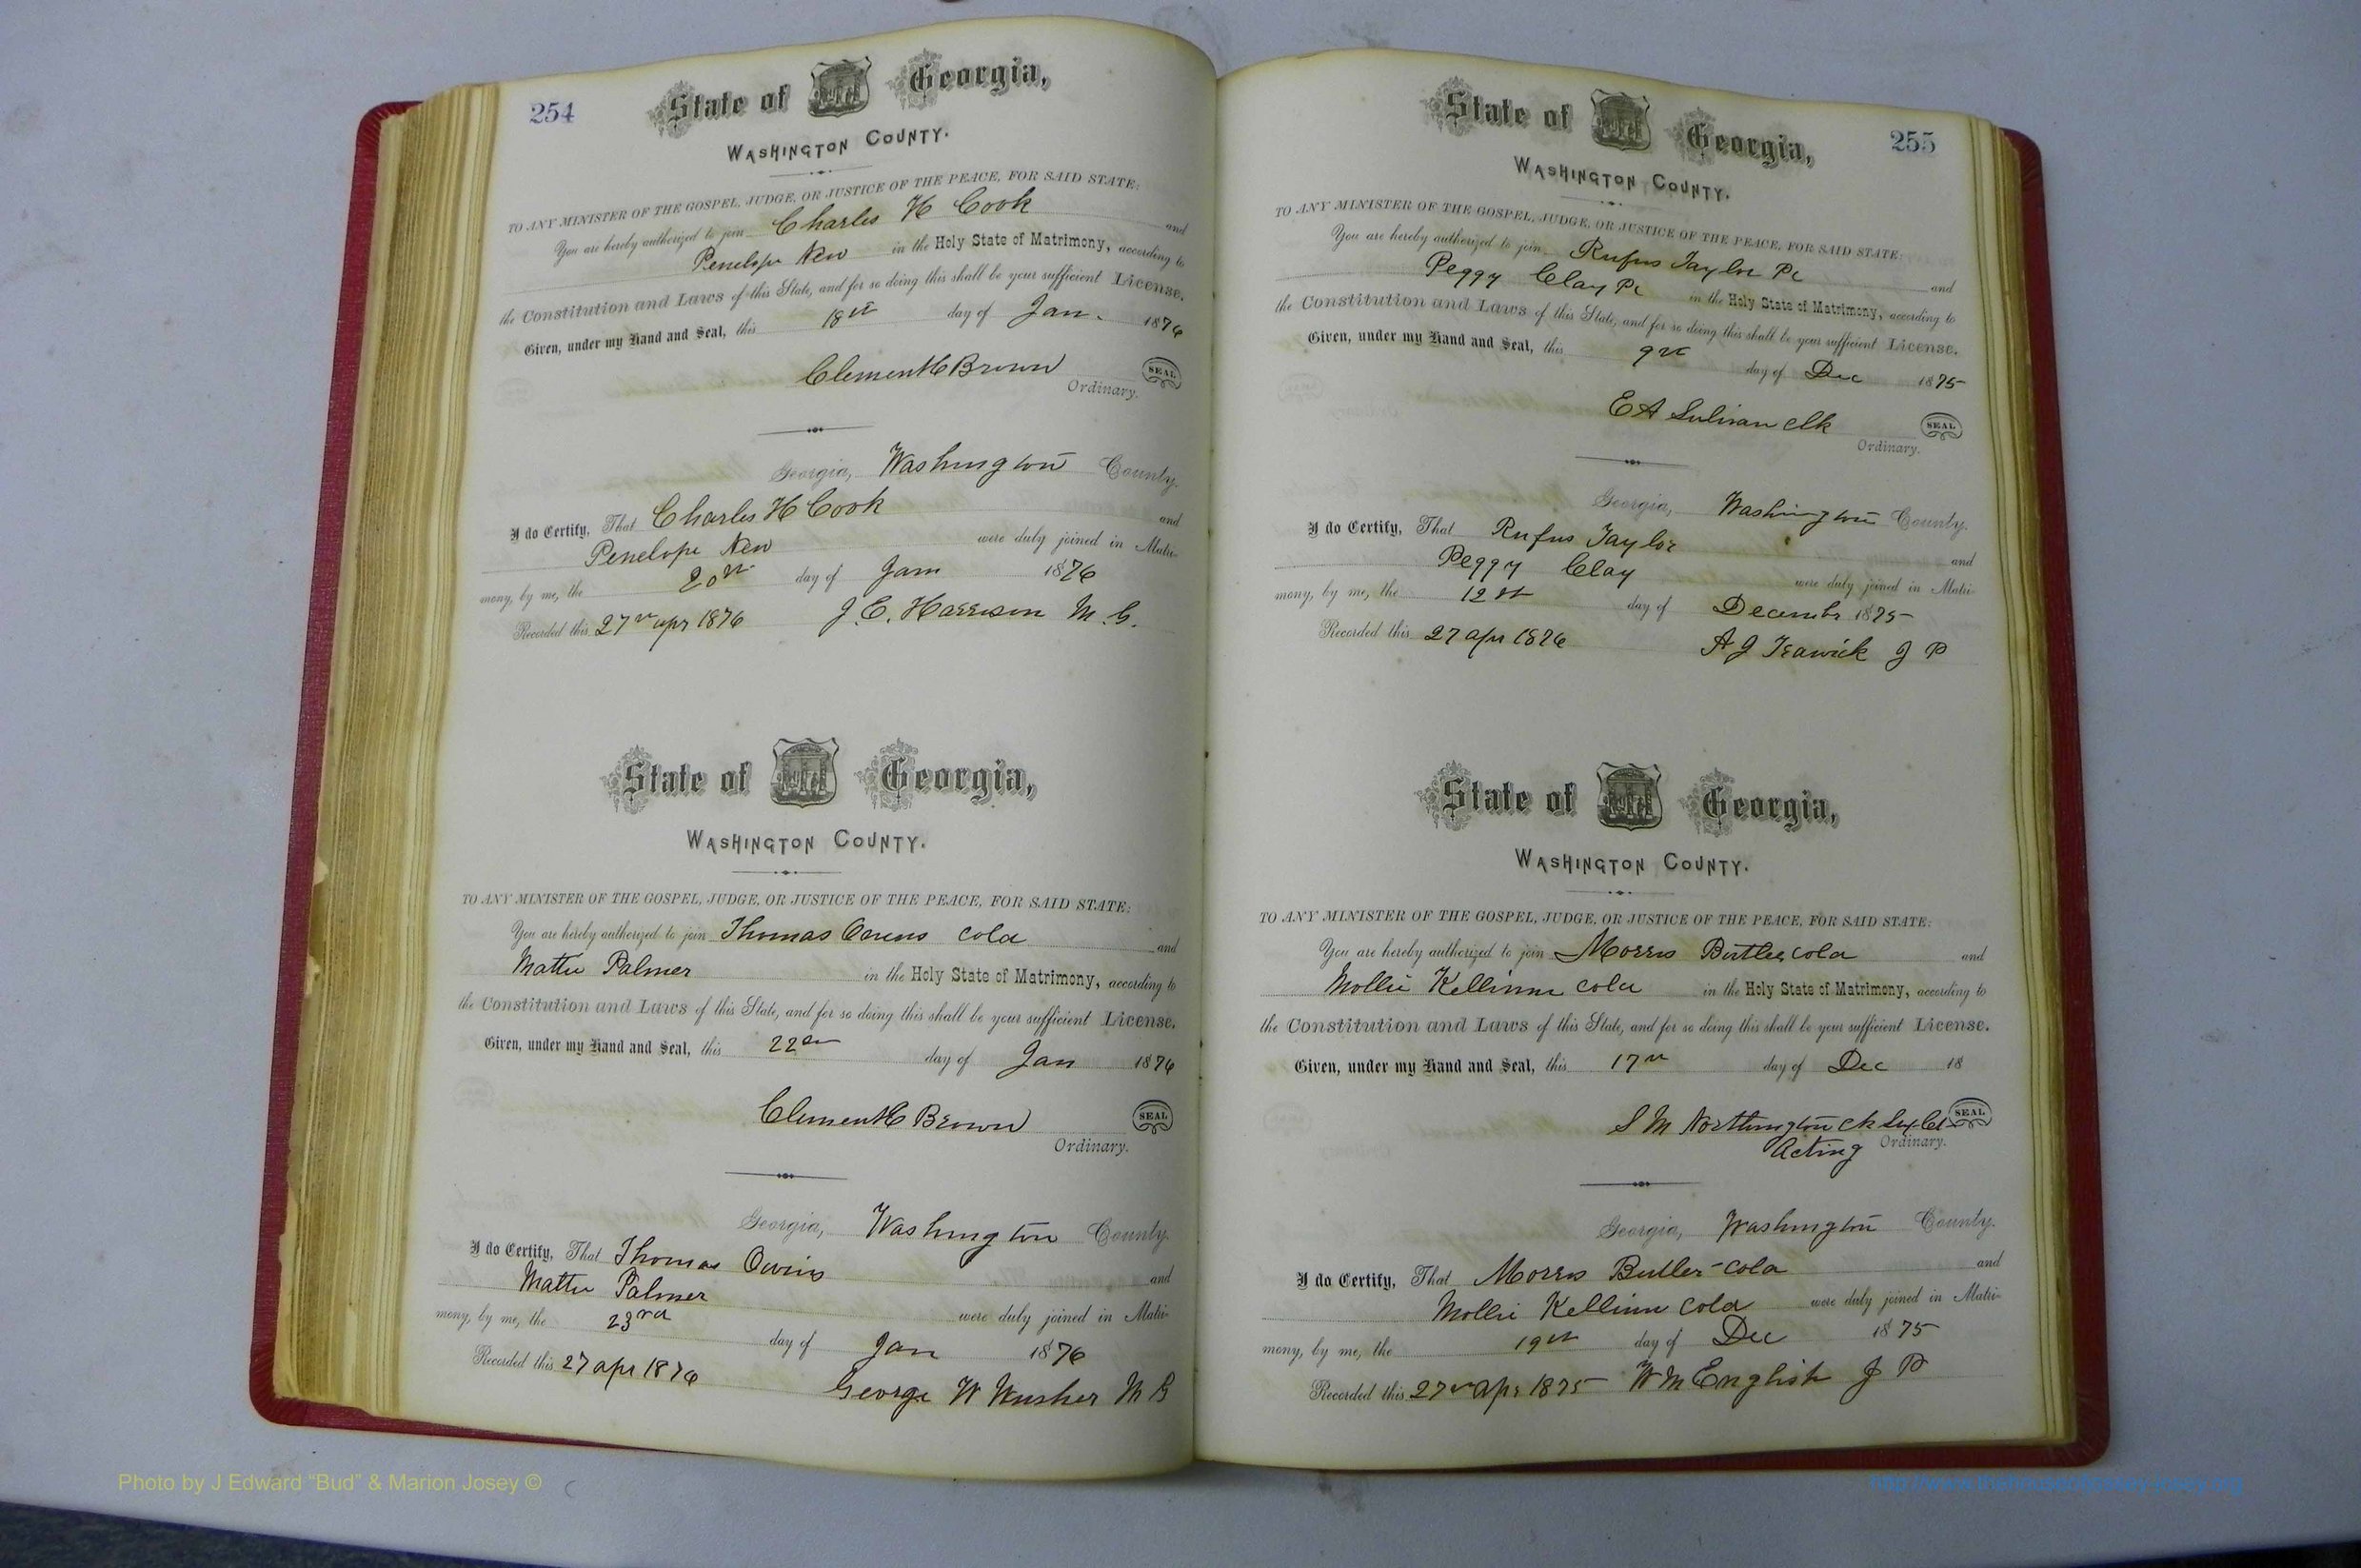 254
State of Georgia,
WASHINGTON COUNTY.
TO ANY MINISTER OF THE GOSPEL, JUDGE, OR JUSTICE OF THE PEACE, FOR SAID STATE:
You are hereby authorized to join Charles H Cook and
Penelope New in the Holy State of Matrimony, according to
the Constitution and Laws of this State, and for so doing this shall be your sufficient License.
Given, under my Hand and Seal, this 18th day of Jan. 1876
Clement C Brown SEAL
Ordinary.
Georgia, Washington County.
I do Certify, That Charles H Cook and
Penelope New were duly joined in Matri-
mony, by me, the 20th day of Jan 1876
Recorded this 27th apr 1876 J. E. Harrison M. G.
State of Georgia,
WASHINGTON COUNTY.
TO ANY MINISTER OF THE GOSPEL, JUDGE, OR JUSTICE OF THE PEACE, FOR SAID STATE:
You are hereby authorized to join Thomas Owens cold and
Mattie Palmer in the Holy State of Matrimony, according to
the Constitution and Laws of this State, and for so doing this shall be your sufficient License.
Given, under my Hand and Seal, this 22 day of Jan 1876
Clement C Brown SEAL
Ordinary.
Georgia, Washington County.
I do Certify, That Thomas Owins and
Mattie Palmer were duly joined in Matri-
mony, by me, the 23rd day of Jan 1876
Recorded this 27 apr 1876 George W Wusher M G
State of Georgia,
255
WASHINGTON COUNTY.
TO ANY MINISTER OF THE GOSPEL, JUDGE, OR JUSTICE OF THE PEACE, FOR SAID STATE:
You are hereby authorized to join Rufus Taylor Pc and
Peggy Clay Pc in the Holy State of Matrimony, according to
the Constitution and Laws of this State, and for so doing this shall be your sufficient License.
Given, under my Hand and Seal, this 9th day of Dec 1875
E A Sulivan clk SEAL
Ordinary.
Georgia, Washington County.
I do Certify, That Rufus Taylor and
Peggy Clay were duly joined in Matri-
mony, by me, the 12th day of Decembr 1875
Recorded this 27 apr 1876 A J Trawick J P
State of Georgia,
WASHINGTON COUNTY.
TO ANY MINISTER OF THE GOSPEL, JUDGE, OR JUSTICE OF THE PEACE, FOR SAID STATE:
You are hereby authorized to join Morris Butler cold and
Mollie Kellinm cold in the Holy State of Matrimony, according to
the Constitution and Laws of this State, and for so doing this shall be your sufficient License.
Given, under my Hand and Seal, this 17th day of Dec 18
S M Northington ck SEAL
Acting Ordinary.
Georgia, Washington County.
I do Certify, That Morris Butler cold and
Mollie Kellinm cold were duly joined in Matri-
mony, by me, the 19th day of Dec 1875
Recorded this 27th apr 1875 W M English J P
Photo by J Edward “Bud” & Marion Josey ©